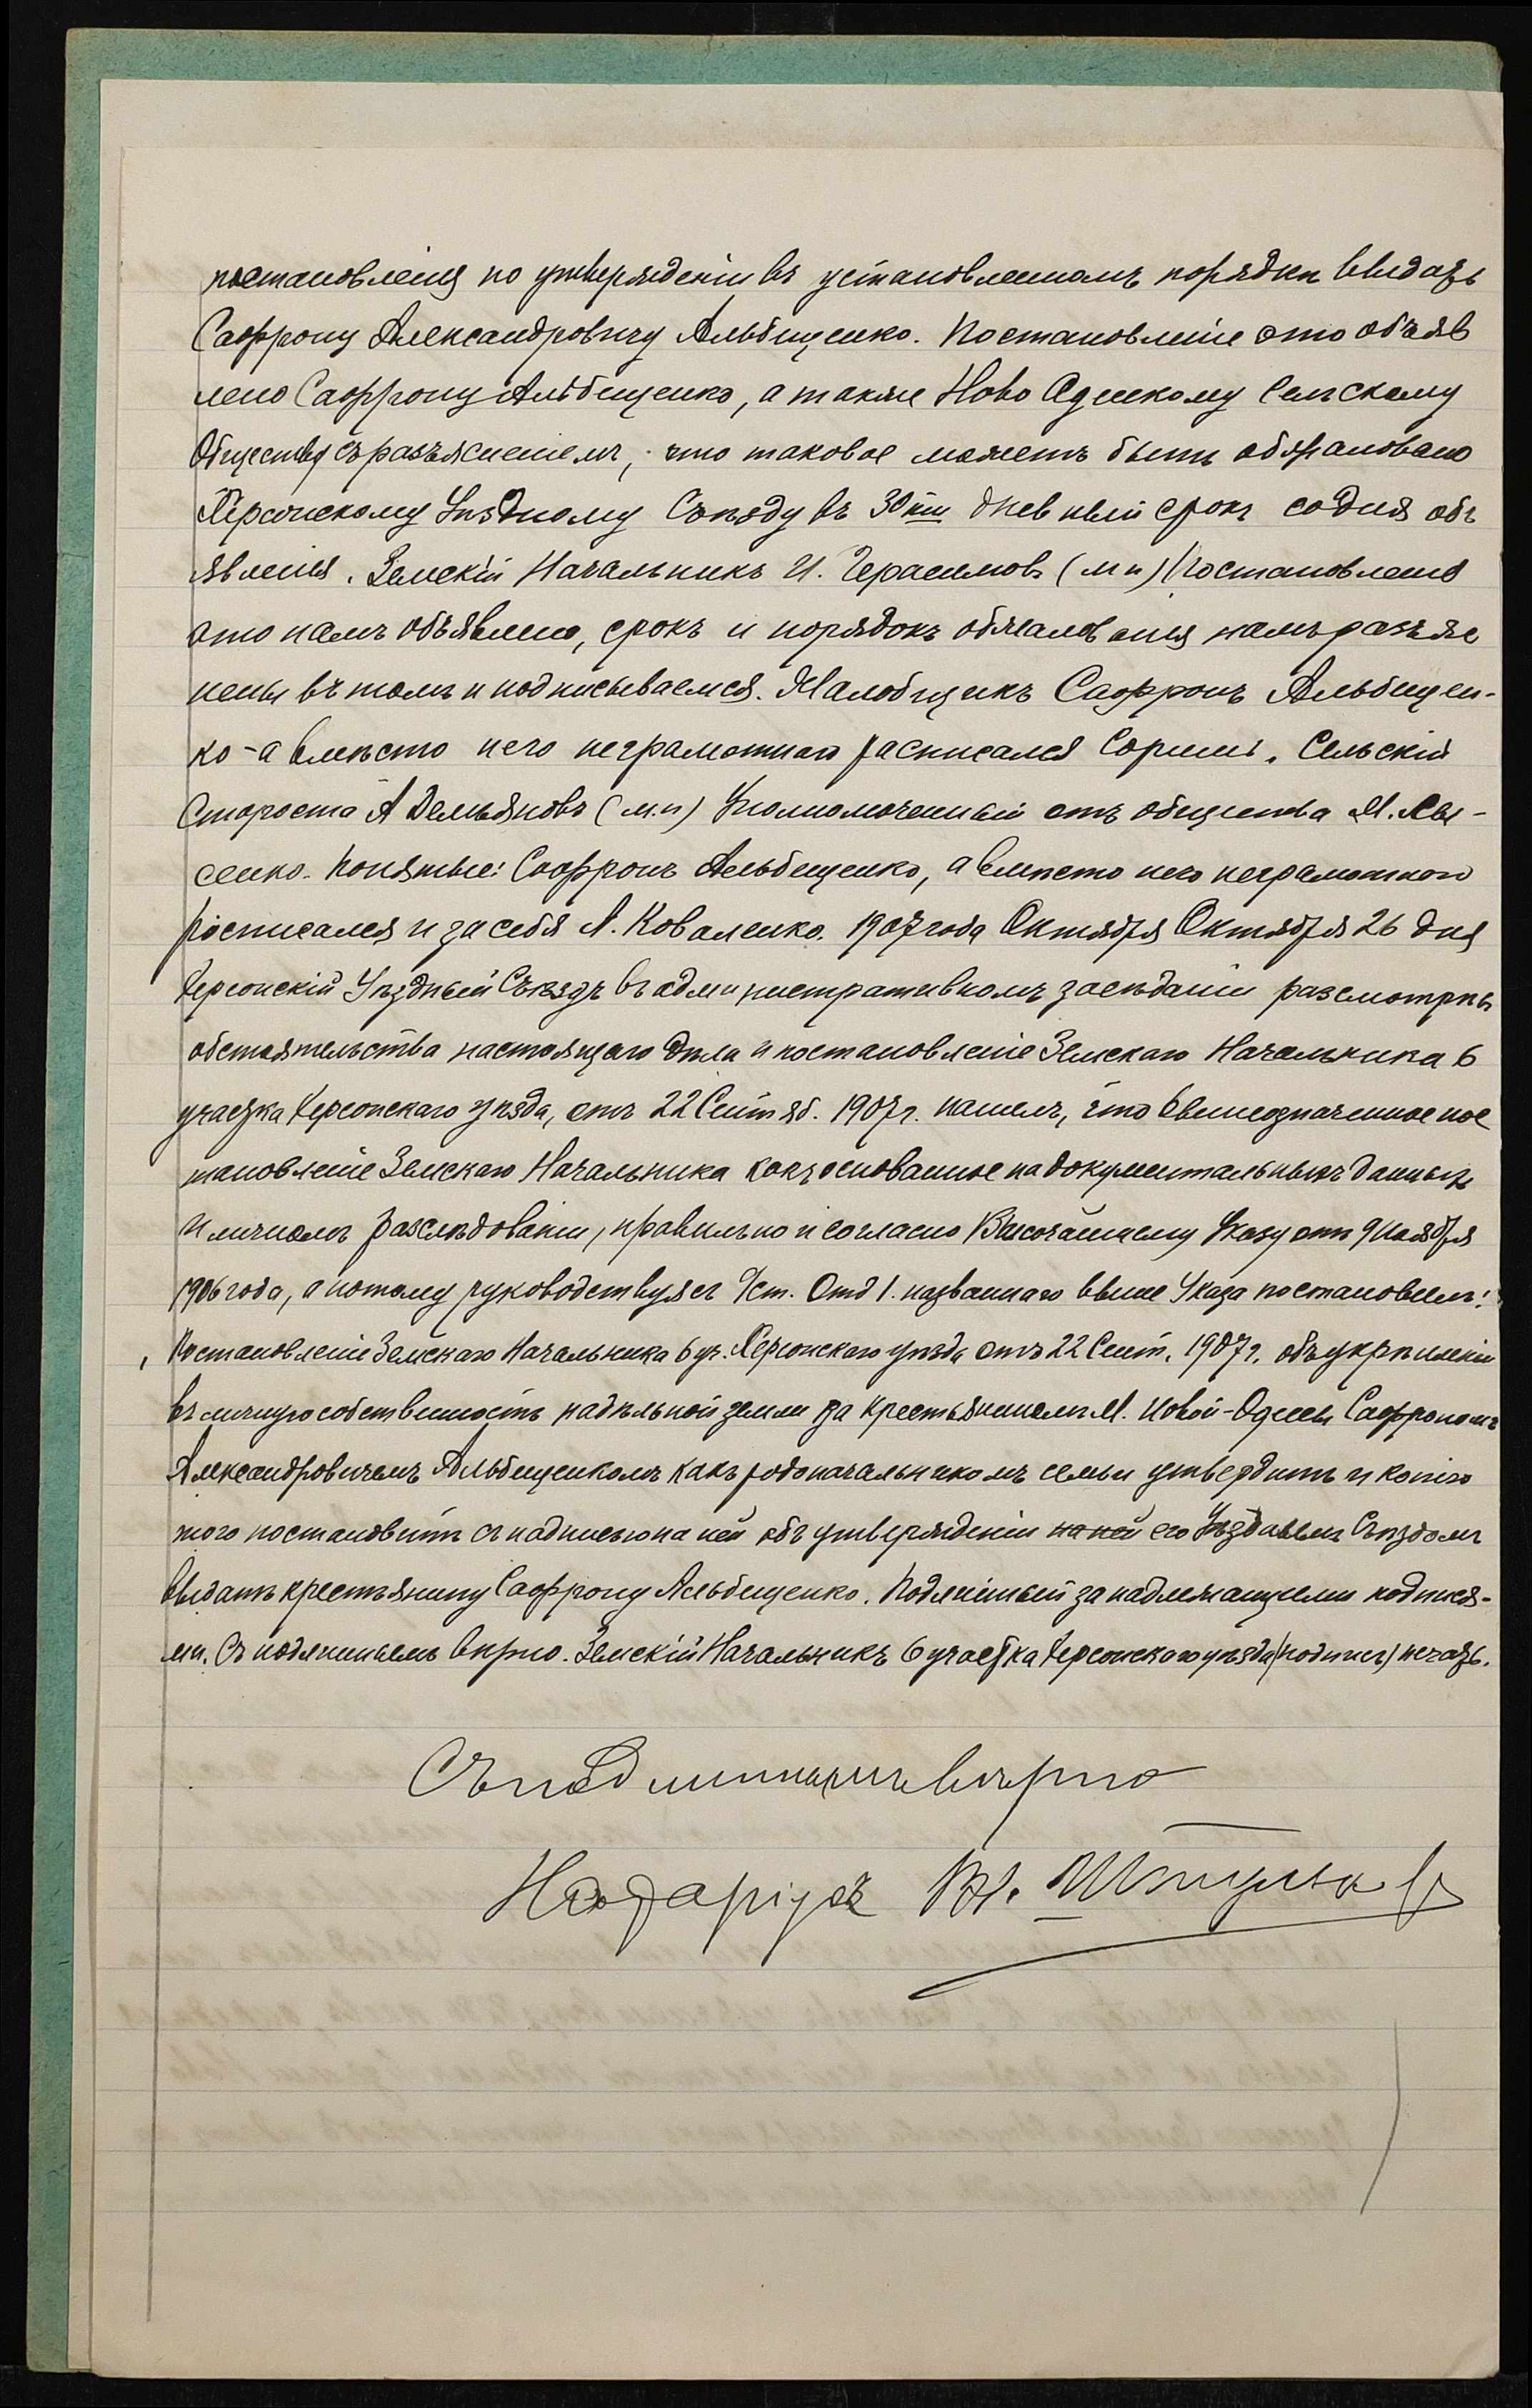 постановленія по утвержденіи въ установленномъ порядкѣ выдать
Саффрону Александровичу Альбищенко. Постановленіе это объяв
лено Саффрону Альбищенко, а также Ново Одескому Сельскому
Обществу съ разъясненіемъ, что таковое можетъ быть обжаловано
Херсонскому Уѣздному Съѣзду въ 30ти дневный срокъ со дня объ
явленія. Земскій Начальникъ И. Герасимовъ (м п) Постановленіе
это намъ объявлено, срокъ и порядокъ обжалованія намъ разъяс
нены въ томъ и подписываемся. Жалобщикъ Саффронъ Альбищен-
ко - а вмѣсто него неграмотнаго расписался Сельскій
Староста А Демьяновъ (м.п) Уполномоченный отъ общества М. Лы-
сенко. Понятые: Саффронъ Альбещенко, а вмѣсто него неграмотного
росписался и за себя А. Коваленко. 1907 года Октября Октября 26 дня
Херсонскій Уѣздный Съѣздъ въ административномъ засѣданіи разсмотрѣвъ
обстоятельства настоящаго дѣла и постановленіе Земскаго Начальника 6
участка Херсонскаго уѣзда, отъ 22 Сентяб. 1907 г. нашелъ, что вышеозначенное пос
тановленіе Земскаго Начальника какъ основанное на документальныхъ данныхъ
и личномъ разслѣдованіи, правильно и согласно Высочайшему Указу отъ 9 Ноября
1906 года, а потому руководствуясь 9 ст. Отд 1. названнаго выше Указа постановилъ:
Постановленіе Земскаго Начальника 6 уч. Херсонскаго уѣзда отъ 22 Сент. 1907 г. объ укрѣпленіи
въ личную собственность надѣльной земли за крестьяниномъ М. Новой-Одессы Саффрономъ
Александровичемъ Альбещенкомъ какъ родоначальникомъ семьи утвердить и копію
того постановить съ надписью на ней объ утвержденіи на ней его Уѣзднымъ Съѣздомъ
выдать крестьянину Саффрону Альбещенко. Подлинный за надлежащими подпися-
ми. Съ подлиннымъ вѣрно. Земскій Начальникъ 6 участка Херсонскаго уѣзда (подпись) печать.
Съ подлиннымъ вѣрно
Нотаріусъ Вл.